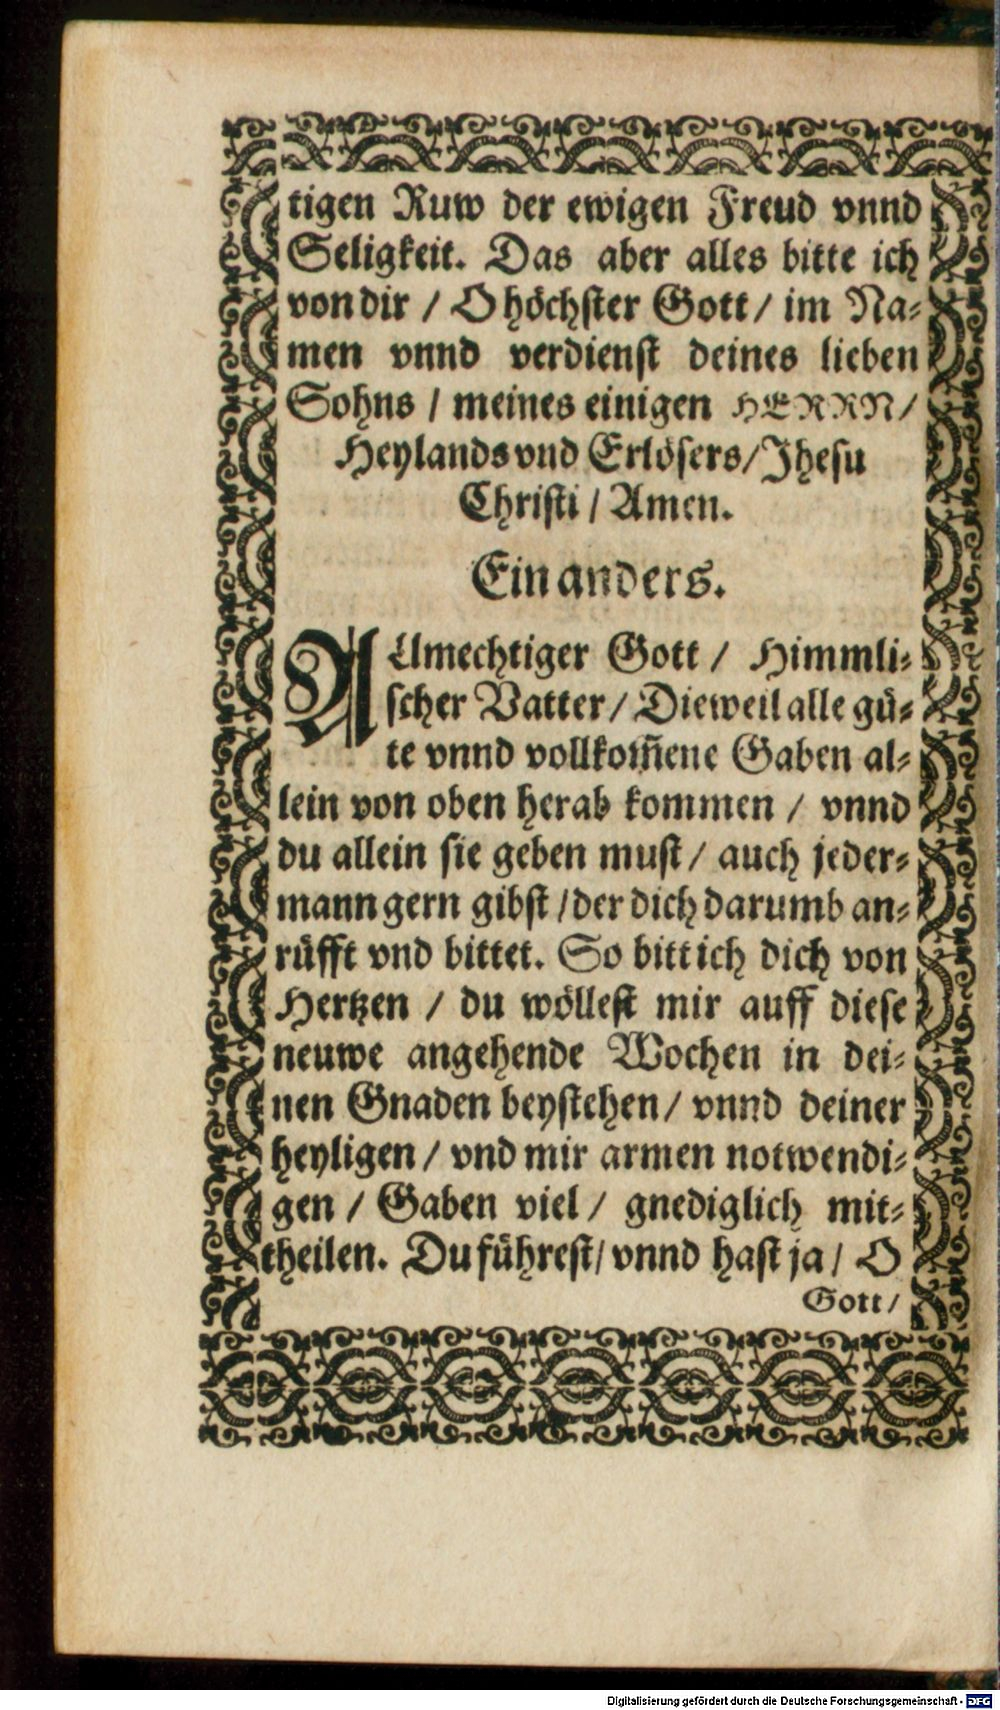 tigen Ruw der ewigen Freud vnnd
Seligkeit. Das aber alles bitte ich
von dir / O höchster Gott / im Na-
men vnnd verdienst deines lieben
Sohns / meines einigen HERRN /
Heylands vnd Erlösers / Jhesu
Christi / Amen.
Ein anders.
Allmechtiger Gott / Himmli-
scher Vatter / Dieweil alle gü-
te vnnd vollkom̃ene Gaben al-
lein von oben herab kommen / vnnd
du allein sie geben must / auch jeder-
mann gern gibst / der dich darumb an-
rüfft vnd bittet. So bitt ich dich von
Hertzen / du wöllest mir auff diese
neuwe angehende Wochen in dei-
nen Gnaden beystehen / vnnd deiner
heyligen / vnd mir armen notwendi-
gen / Gaben viel / gnediglich mit-
theilen. Du führest / vnnd hast ja / O
Gott /
Digitalisierung gefördert durch die Deutsche Forschungsgemeinschaft - DFG